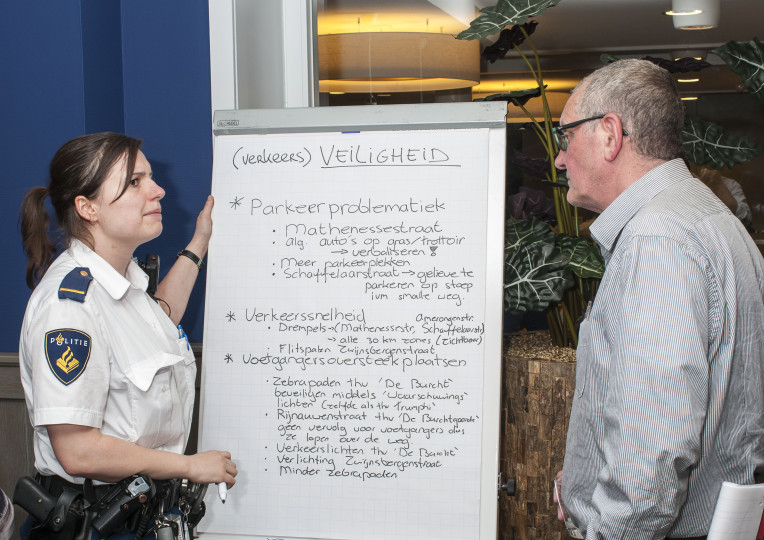 (verkeers) VEILIGHEID
* Parkeerproblematiek
• Mathenessestraat
• alg. auto's op gras/trottoir
→ verbaliseren !
• Meer parkeerplekken
• Schaffelaarstraat → gelieve te
parkeren op stoep
ivm smalle weg.
* Verkeerssnelheid
Amerongenstr.
• Drempels → (Mathenessestr, Schaffelaarstr)
→ alle 30 km zones (zichtbaar)
• Flitspalen Zwijnsbergenstraat
* Voetgangersoversteekplaatsen
• Zebrapaden thv 'De Burcht'
beveiligen middels 'waarschuwings
lichten (zelfde als thv Trumph)
• Rijnauwenstraat thv 'De Burchtgaarde'
geen vervolg voor voetgangers dus
ze lopen over de weg
• Verkeerslichten thv 'De Burcht'
• Verlichting Zwijnsbergenstraat
• Minder zebrapaden
POLITIE